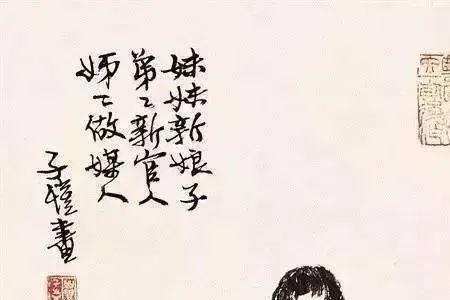 妹妹新娘子
弟〻新官人
姊〻做媒人
子愷畫